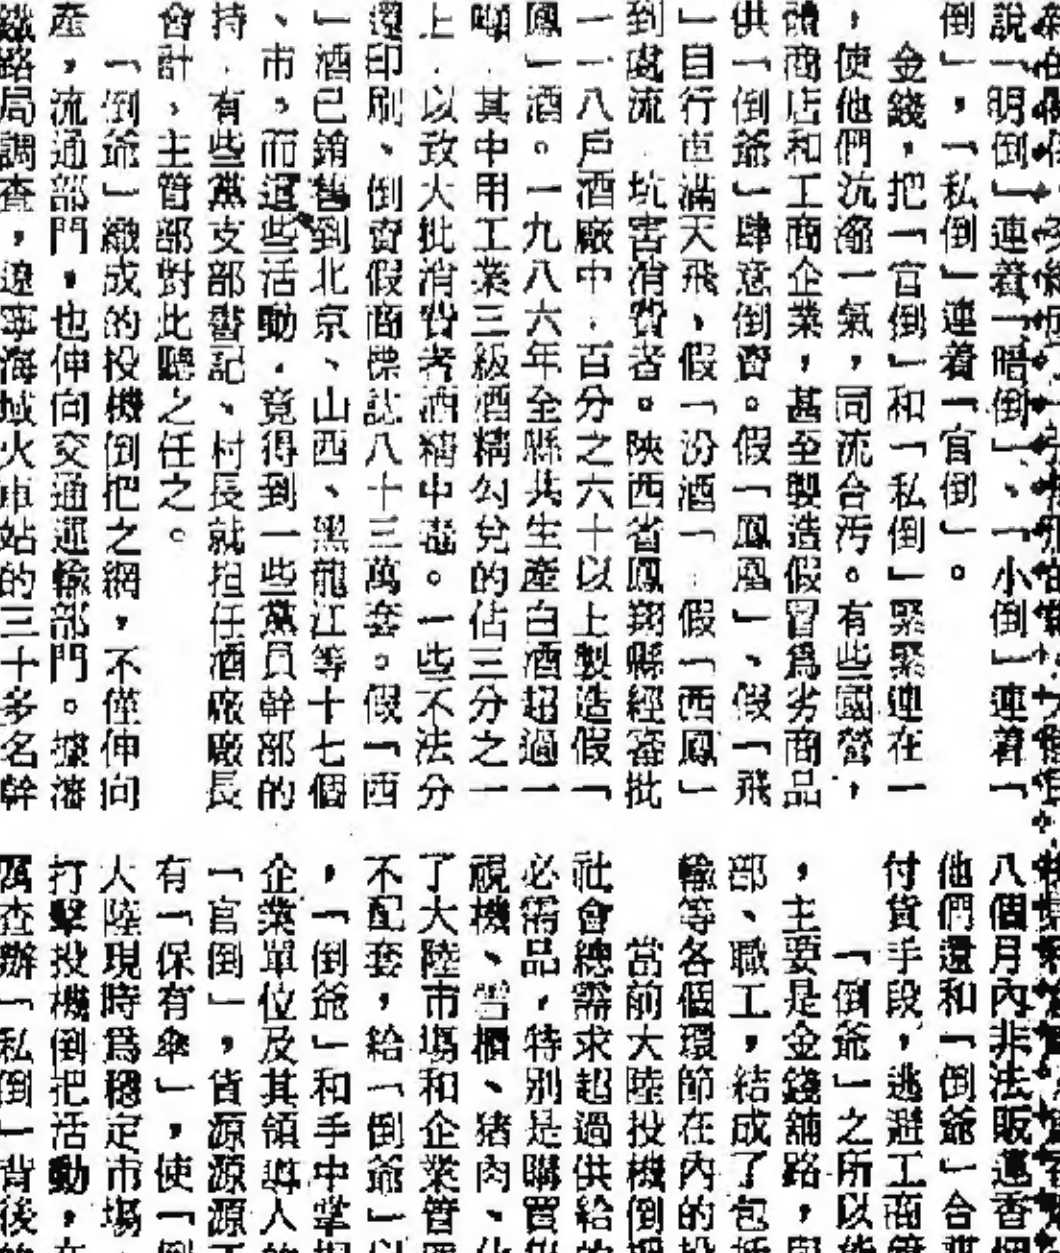 說「明倒」連着「暗倒」、「小倒」連着「
倒」，「私倒」連着「官倒」。
金錢，把「官倒」和「私倒」緊緊連在一
，使他們沆瀣一氣，同流合污。有些國營，
體商店和工商企業，甚至製造假冒爲劣商品
供「倒爺」肆意倒賣。假「鳳凰」、假「飛
」自行車滿天飛、假「汾酒「 假「西鳳」
到處流 坑害消費者。陝西省鳳翔縣經審批
一一八戶酒廠中，百分之六十以上製造假「
鳳」酒。一九八六年全縣共生產白酒超過一
噸．其中用工業三級酒精勾兌的佔三分之一
上．以致大批消費者酒精中毒。一些不法分
還印刷、倒賣假商標誌八十三萬套。假「西
」酒已銷售到北京、山西、黑龍江等十七個
、市。而這些活動．竟得到一些黨員幹部的
持．有些黨支部書記、村長就担任酒廠廠長
會計、主管部對此聽之任之。
「倒爺」織成的投機倒把之網，不僅伸向
產，流通部門，也伸向交通運輸部門。據瀋
鐵路局調查，遼寧海城火車站的三十多名幹
八個月內非法販運香
他們還和「倒爺」合
付貨手段，逃避工商
「倒爺」之所以
，主要是金錢舖路，
部、職工，結成了包
輸等各個環節在內的
當前大陸投機倒
社會總需求超過供給
必需品，特別是購買
視機、雪櫃、猪肉、
了大陸市場和企業管
不配套，給「倒爺」以
，「倒爺」和手中掌
企業單位及其領導人
「官倒」，貨源源源
有「保有傘」，使「倒
大陸現時爲穩定市場、
打擊投機倒把活動，在
厲查辦「私倒」背後